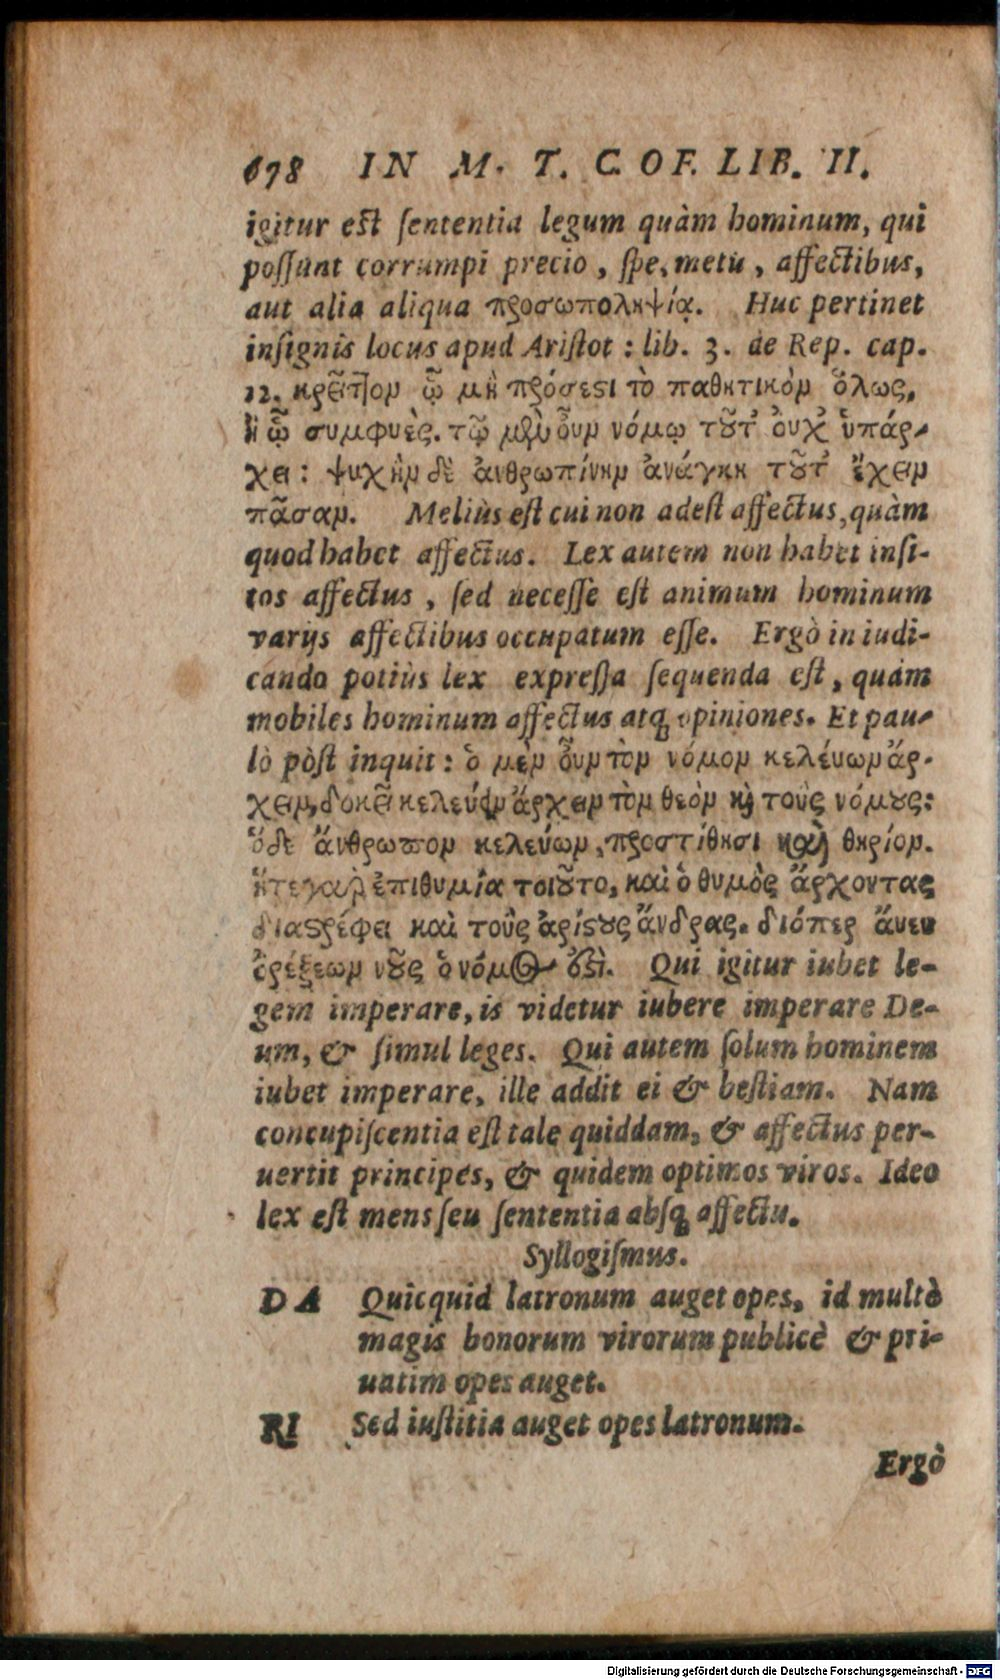 678 IN M. T. C. OF. LIB. II.
igitur est ſententia legum quàm hominum, qui
poſſunt corrumpi precio, ſpe, metu, affectibus,
aut alia aliqua προσωποληψίᾳ. Huc pertinet
inſignis locus apud Ariſtot: lib. 3. de Rep. cap.
12. κρεῖττον ᾧ μὴ πρόσεστι τὸ παθητικὸν ὅλως,
ἢ ᾧ συμφυὲς. τῷ μὲν οὖν νόμῳ τοῦτ᾽ οὐχ ὑπάρ-
χει: ψυχὴν δὲ ἀνθρωπίνην ἀνάγκη τοῦτ᾽ ἔχειν
πᾶσαν. Meliùs eſt cui non adeſt affectus, quàm
quod habet affectus. Lex autem non habet inſi-
tos affectus, ſed neceſſe eſt animum hominum
varijs affectibus occupatum eſſe. Ergò in iudi-
cando potiùs lex expreſſa ſequenda eſt, quàm
mobiles hominum affectus atq; opiniones. Et pau-
lò pòſt inquit: ὁ μὲν οὖν τὸν νόμον κελέυων ἄρ-
χειν, δοκεῖ κελεύειν ἄρχειν τὸν θεὸν καὶ τοὺς νόμους:
ὁ δὲ ἄνθρωπον κελεύων, προστίθησι καὶ θηρίον.
ἥτε γαρ ἐπιθυμία τοιοῦτο, καὶ ὁ θυμὸς ἄρχοντας
διαστρέφει καὶ τοὺς ἀρίστους ἄνδρας. διόπερ ἄνευ
ὀρέξεων νοῦς ὁ νόμος ἐστὶ. Qui igitur iubet le-
gem imperare, is videtur iubere imperare De-
um, & ſimul leges. Qui autem ſolum hominem
iubet imperare, ille addit ei & beſtiam. Nam
concupiſcentia eſt tale quiddam, & affectus per-
uertit principes, & quidem optimos viros. Ideo
lex eſt mens ſeu ſententia abſq; affectu.
Syllogiſmus.
DA Quicquid latronum auget opes, id multò
magis bonorum virorum publicè & pri-
uatim opes auget.
RI Sed iuſtitia auget opes latronum.
Ergò
Digitalisierung gefördert durch die Deutsche Forschungsgemeinschaft - DFG